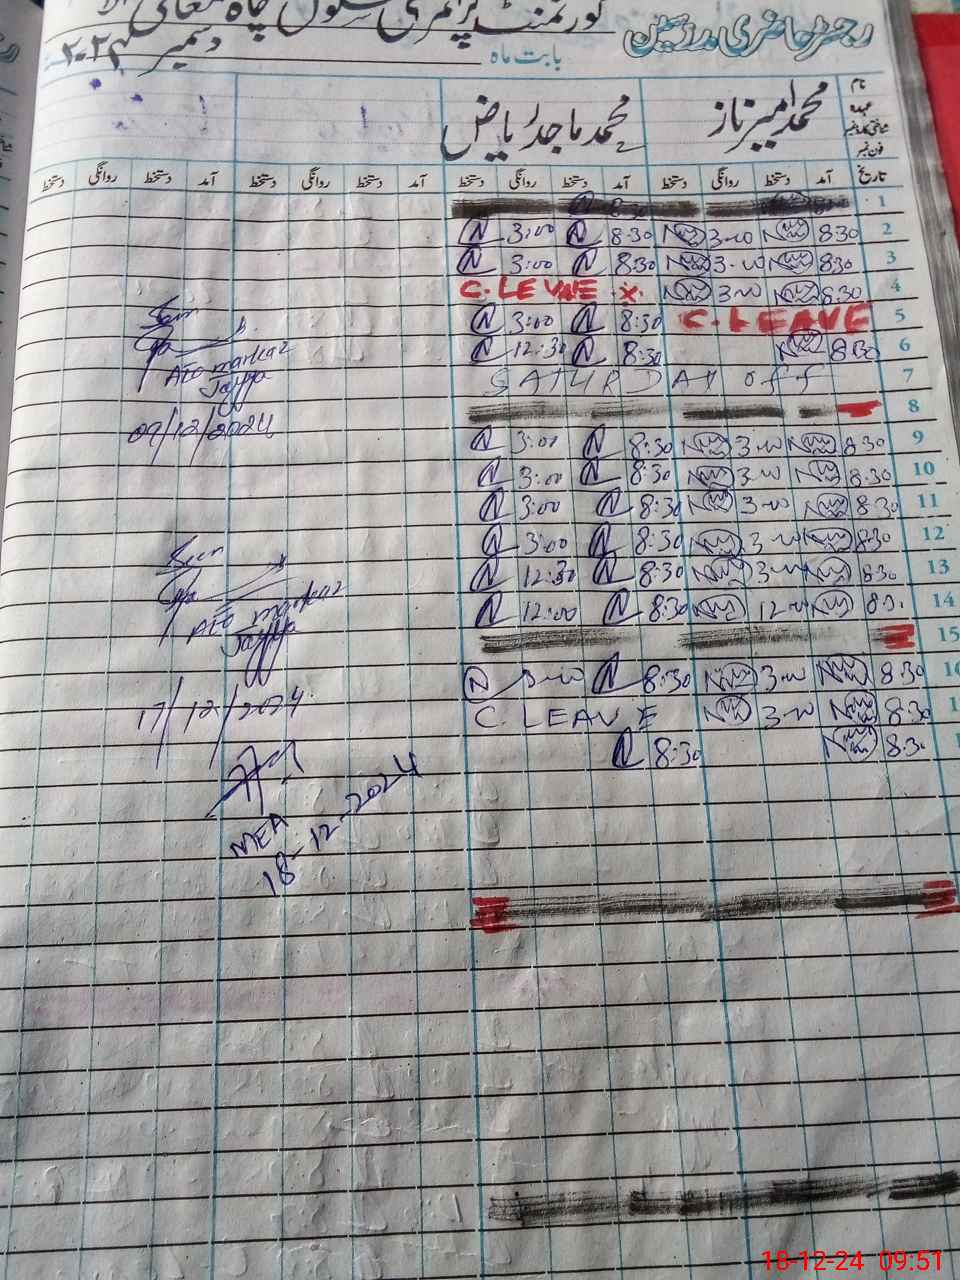 گورنمنٹ پرائمری سکول چاہ
رجسٹر حاضری مدرسین
بابت ماہ دسمبر ۲۰۲۴
نام محمد امیر نواز محمد ماجد ریاض
عہدہ
شناختی کارڈ نمبر
فون نمبر
تاریخ آمد دستخط روانگی دستخط آمد دستخط روانگی دستخط آمد دستخط روانگی دستخط آمد دستخط روانگی دستخط
1
N 3:00 N 8:30 3-00 8:30 2
N 3:00 N 8:30 3-00 8:30 3
C.LEVAE × 3-00 8:30 4
N 3:00 N 8:30 C.LEAVE 5
N 12:30 N 8:30 8:30 6
SATURDAY off 7
8
N 3:00 N 8:30 3-00 8:30 9
N 3:00 N 8:30 3-00 8:30 10
N 3:00 N 8:30 3-00 8:30 11
N 3:00 N 8:30 3-00 8:30 12
N 12:30 N 8:30 3-00 8:30 13
N 12:00 N 8:30 12-00 8:30 14
15
N 3-00 N 8:30 3-00 8:30
C.LEAVE 3-00 8:30
N 8:30 8:30
AEO markaz
Jayya
09/12/2024
AEO markaz
Jayya
17/12/2024
MEA
18-12-2024
18-12-24 09:51